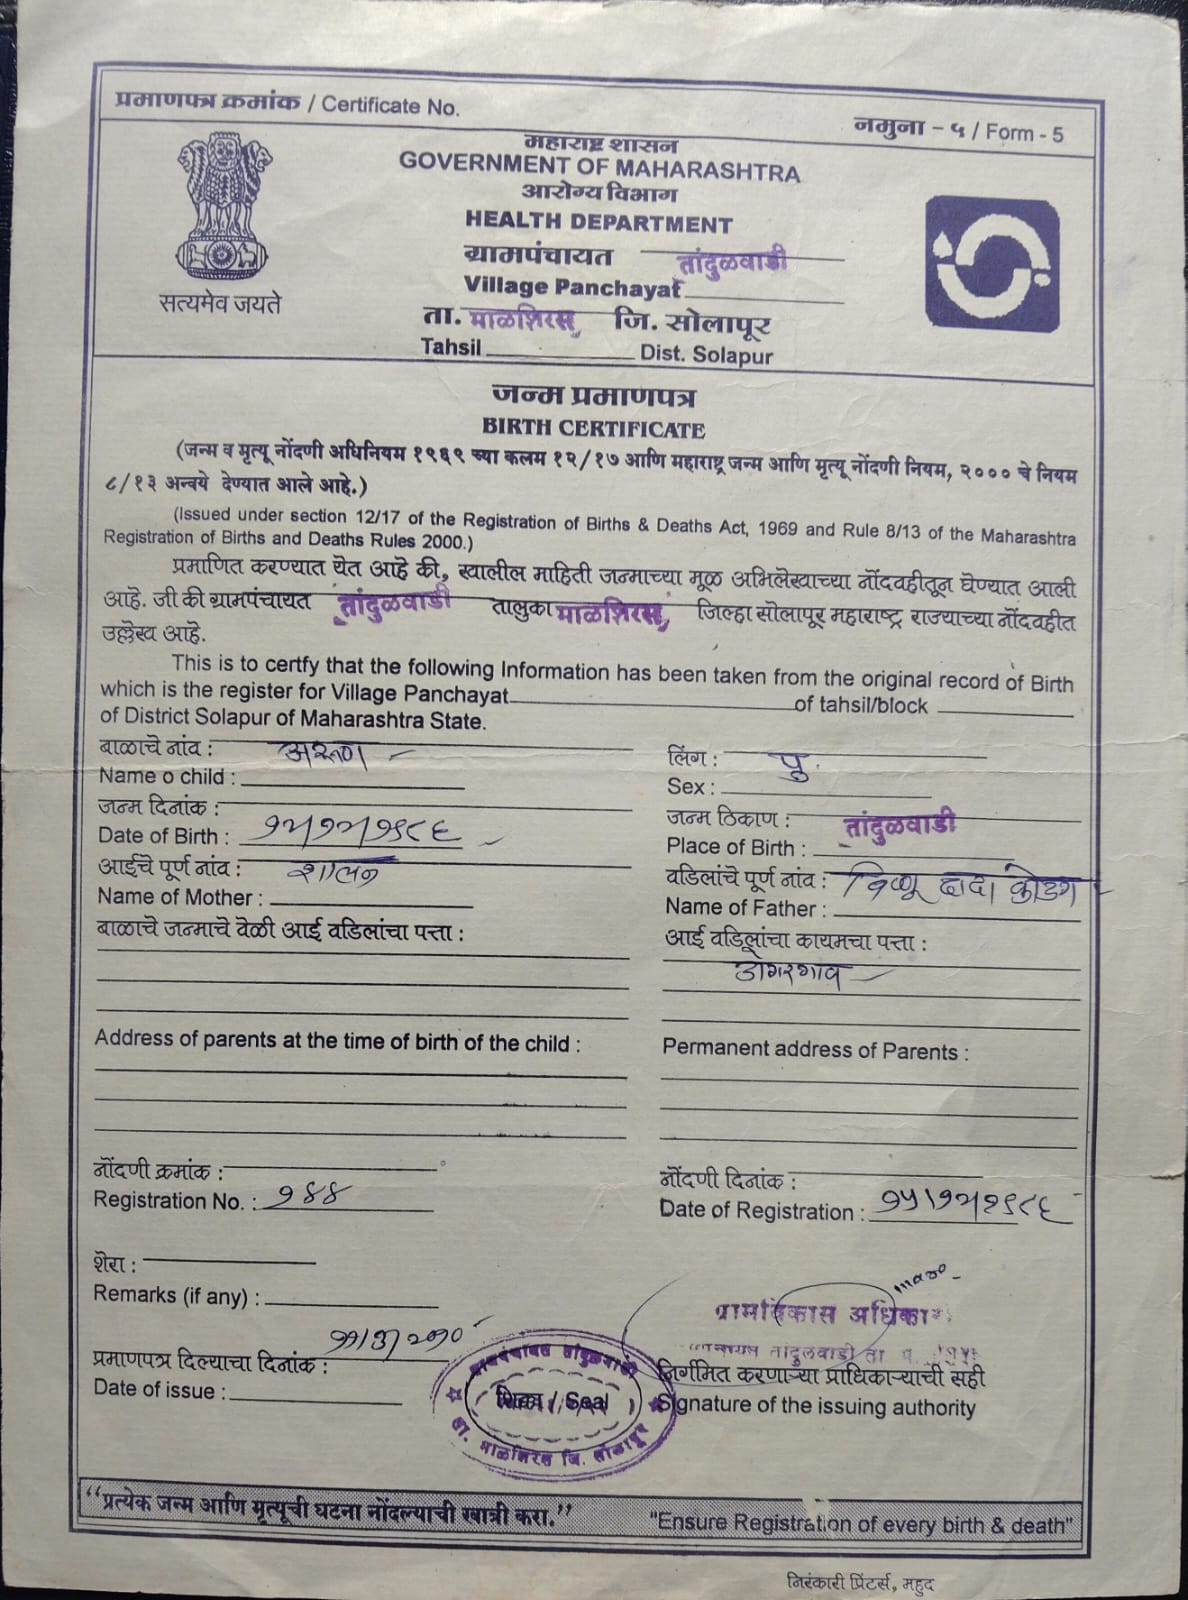 प्रमाणपत्र क्रमांक / Certificate No.
नमुना - ५ / Form - 5
महाराष्ट्र शासन
GOVERNMENT OF MAHARASHTRA
आरोग्य विभाग
HEALTH DEPARTMENT
ग्रामपंचायत तांदुळवाडी
Village Panchayat
ता. माळशिरस, जि. सोलापूर
Tahsil Dist. Solapur
सत्यमेव जयते
जन्म प्रमाणपत्र
BIRTH CERTIFICATE
(जन्म व मृत्यू नोंदणी अधिनियम १९६९ च्या कलम १२/१७ आणि महाराष्ट्र जन्म आणि मृत्यू नोंदणी नियम, २००० चे नियम
८/१३ अन्वये देण्यात आले आहे.)
(Issued under section 12/17 of the Registration of Births & Deaths Act, 1969 and Rule 8/13 of the Maharashtra
Registration of Births and Deaths Rules 2000.)
प्रमाणित करण्यात येत आहे की, खालील माहिती जन्माच्या मूळ अभिलेखाच्या नोंदवहीतून घेण्यात आली
आहे. जी की ग्रामपंचायत तांदुळवाडी तालुका माळशिरस, जिल्हा सोलापूर महाराष्ट्र राज्याच्या नोंदवहीत
उल्लेख आहे.
This is to certfy that the following Information has been taken from the original record of Birth
which is the register for Village Panchayat of tahsil/block
of District Solapur of Maharashtra State.
बाळाचे नांव : अरुण
Name o child :
लिंग : पु.
Sex :
जन्म दिनांक :
Date of Birth : १५/१२/१९८६
जन्म ठिकाण : तांदुळवाडी
Place of Birth :
आईचे पूर्ण नांव : शालन
Name of Mother :
वडिलांचे पूर्ण नांव : विष्णू दादा कोडग
Name of Father :
बाळाचे जन्माचे वेळी आई वडिलांचा पत्ता :
आई वडिलांचा कायमचा पत्ता :
डोंगरगाव
Address of parents at the time of birth of the child :
Permanent address of Parents :
नोंदणी क्रमांक :
Registration No. : १४४
नोंदणी दिनांक :
Date of Registration : १५/१२/१९८६
शेरा :
Remarks (if any) :
प्रमाणपत्र दिल्याचा दिनांक :
Date of issue :
शिक्का / Seal
ता. माळशिरस जि. सोलापूर
ग्रामविकास अधिकारी
तांदुळवाडी ता
निर्गमित करणाऱ्या प्राधिकाऱ्याची सही
Signature of the issuing authority
“प्रत्येक जन्म आणि मृत्यूची घटना नोंदल्याची खात्री करा.”
"Ensure Registration of every birth & death"
निरंकारी प्रिंटर्स, महुद